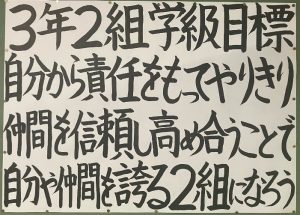 3年2組学級目標
自分から責任をもってやりきり
仲間を信頼し高め合うことで
自分や仲間を誇る2組になろう